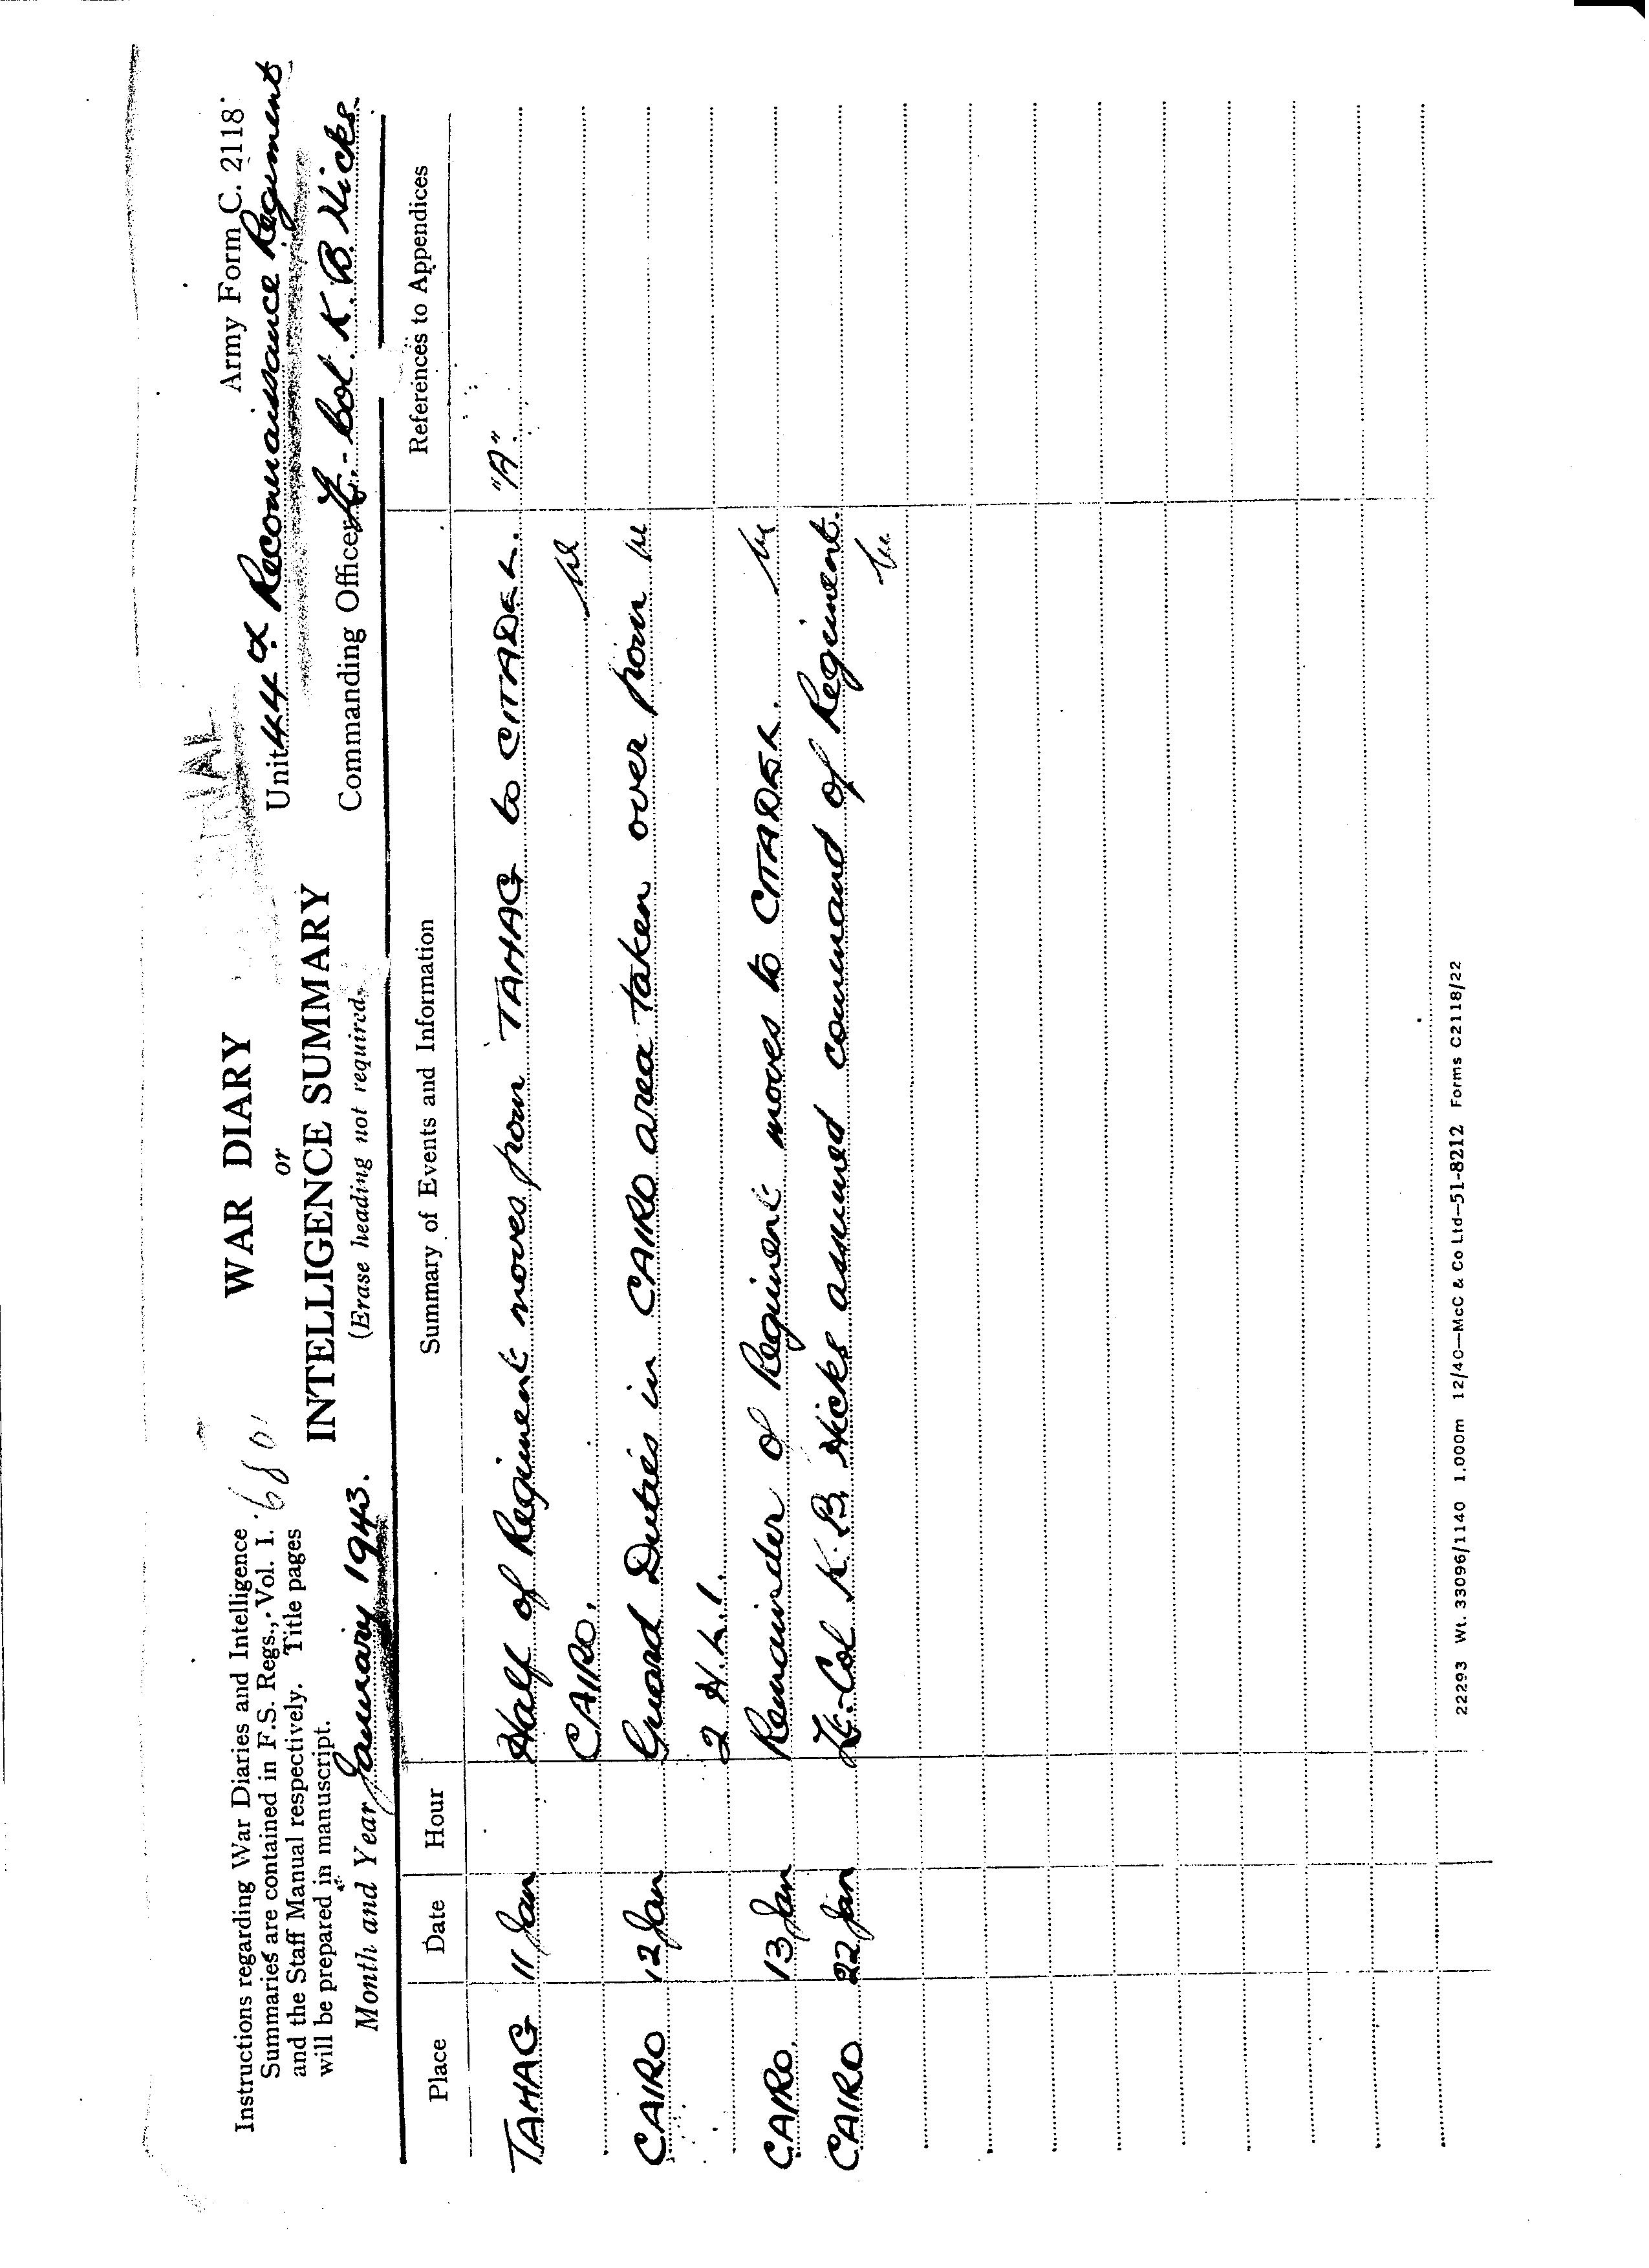 Army Form C. 2118.
WAR DIARY
or
INTELLIGENCE SUMMARY
(Erase heading not required.)
Instructions regarding War Diaries and Intelligence
Summaries are contained in F.S. Regs., Vol. I.
and the Staff Manual respectively. Title pages
will be prepared in manuscript.
680
Month and Year January 1943.
Unit 44th Reconnaissance Regiment
Commanding Officer Lt.-Col. K.B. Hicks
Place Date Hour Summary of Events and Information References to Appendices
TAHAG 11 Jan Half of Regiment moves from TAHAG to CITADEL. "A".
CAIRO.
CAIRO 12 Jan Guard Duties in CAIRO area taken over from
2 H.L.I.
CAIRO. 13 Jan Remainder of Regiment moves to CITADEL.
CAIRO 22 Jan Lt-Col K.B. Hicks assumed command of Regiment.
22293 Wt. 33096/1140 1,000m 12/40—McC & Co Ltd—51-8212 Forms C2118/22